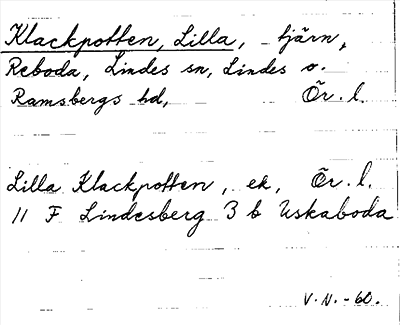 Klackpotten, Lilla, tjärn,
Reboda, Lindes sn, Lindes o.
Ramsbergs hd, Ör. l.
Lilla Klackpotten, ek, Ör. l.
11 F Lindesberg 3 b Uskaboda
V.N.-60.